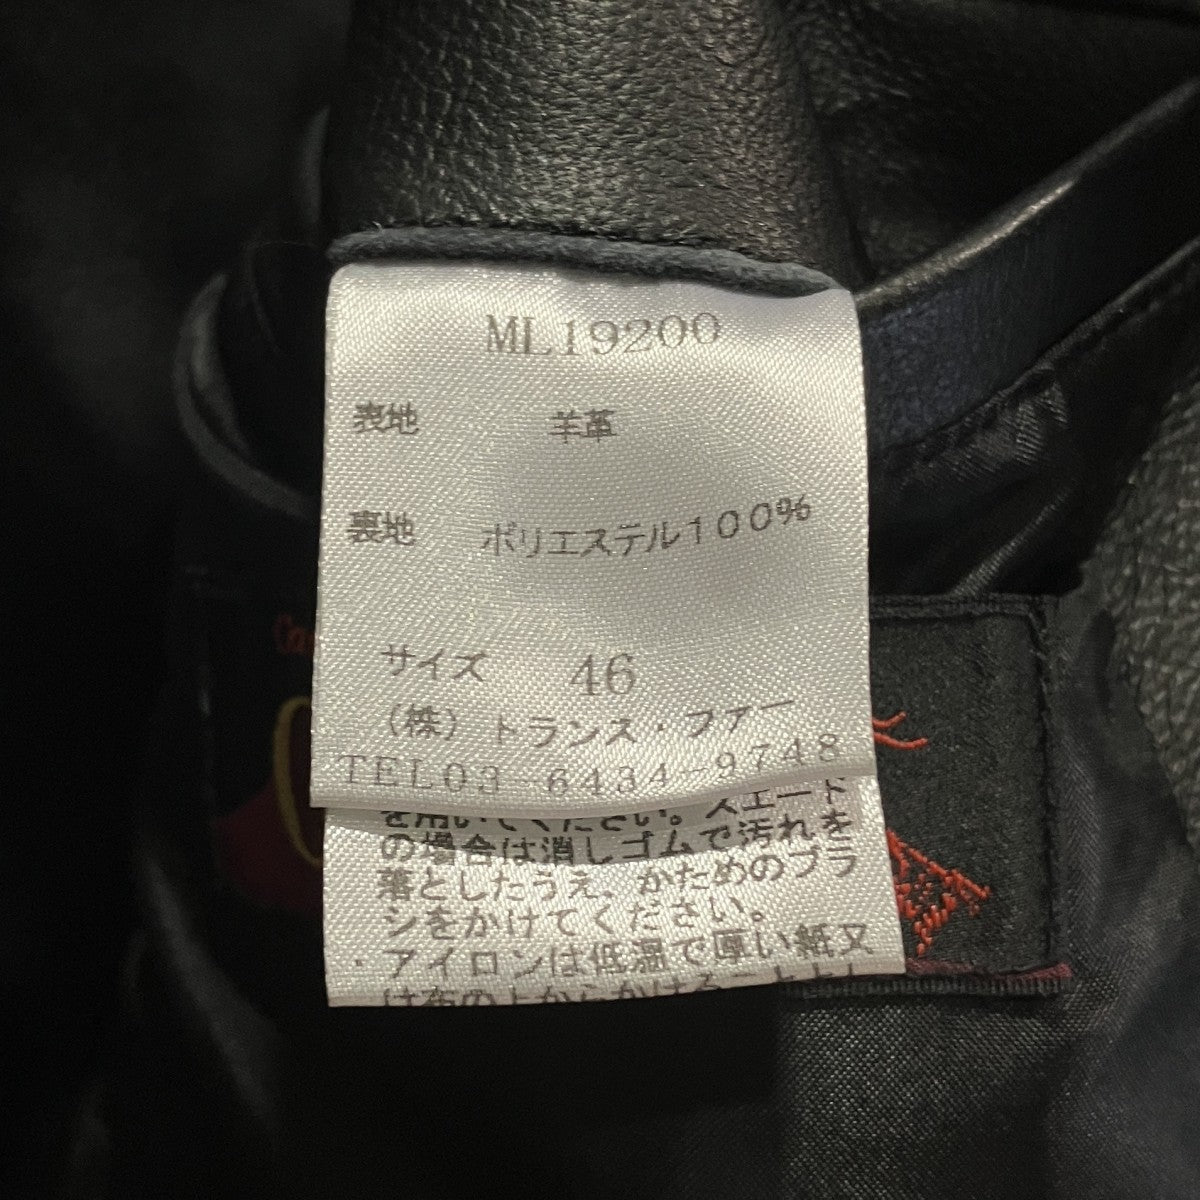 ML19200
表地 羊革
裏地 ポリエステル100%
サイズ 46
(株)トランス・ファー
TEL03-6434-9748
を用いてください。スエード
の場合は消しゴムで汚れを
落としたうえ、かためのブラ
シをかけてください。
・アイロンは低温で厚い紙又
は布の上からかけること